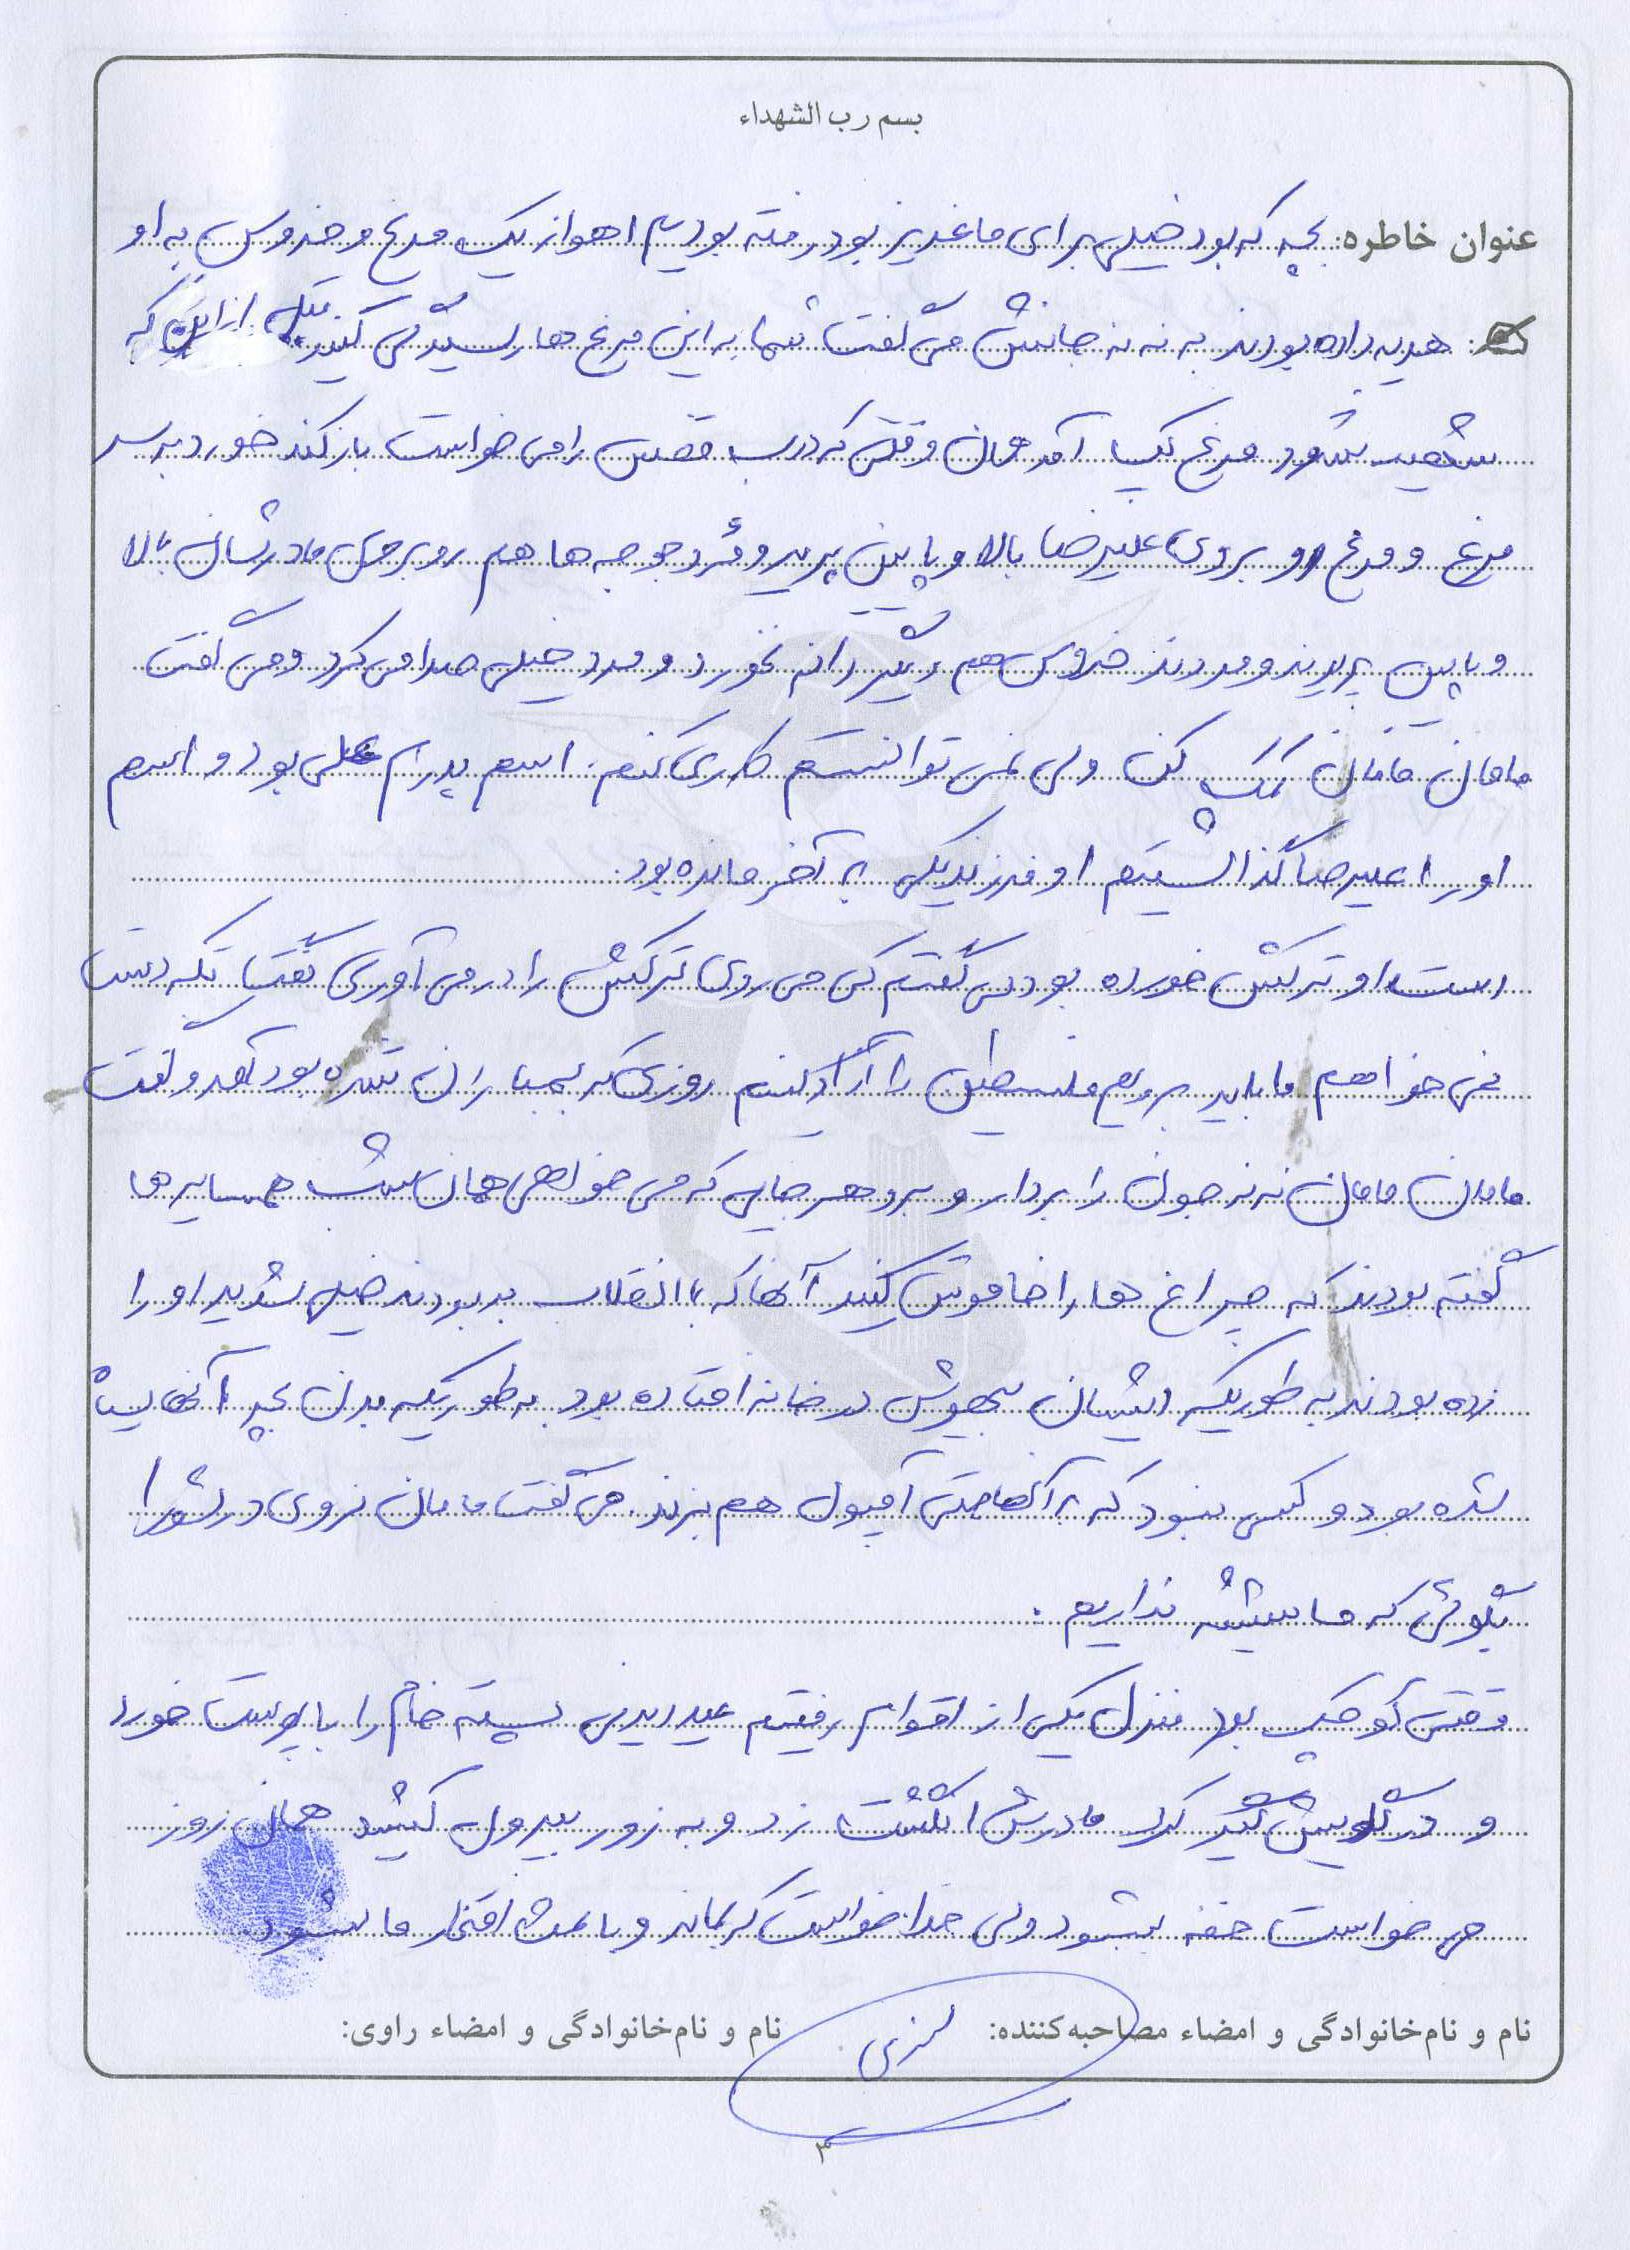 بسم رب الشهداء
عنوان خاطره: بچه که بود خیلی برای ما عزیز بود رفته بودیم اهواز یک مرغ و خروس به او
هدیه داده بودند به نه نه جانش می گفت شما به این مرغ ها رسیدگی کنید قبل از این که
شهید بشود مرغ کیپا آمد همان وقتی که درب قفس را می خواست باز کند خورد به سر
مرغ و مرغ رو بروی علیرضا بالا و پایین پرید و مُرد جوجه ها هم روبروی مادرشان بالا
و پایین پریدند و مردند خروس هم دیگر دانه نخورد و مرد خیلی صدا می کرد و می گفت
مامان مامان کمک کن ولی نمی توانستم کاری کنم. اسم پدرم علی بود و اسم
او را علیرضا گذاشتیم او فرزند یکی به آخر مانده بود.
است او ترکش خورده بود می گفتم کی می روی ترکش را در می آوری گفت تکه دستت
نمی خواهم ما باید برویم فلسطین را آزاد کنیم روزی که بمبا ران شده بود آمد و گفت
مامان مامان نه نه جون را بردار و برو هر جایی که می خواهی همان شب همسایه ها
گفته بودند که چراغ ها را خاموش کنید آنها که با انقلاب بد بودند خیلی شدید او را
زده بودند به طوریکه ایشان بیهوش در خانه افتاده بود به طوریکه بدن بچه آنها سیاه
شده بود و کسی نبود که به آنها حتی آمپول هم بزند. می گفت مامان نروی در شورا
بگوئی که ما شیشه نداریم.
وقتی کوچک بود منزل یکی از اقوام رفتیم عید دیدنی پسته خام را با پوست خورد
و در گلویش گیر کرد مادرش انگشت زد و به زور بیرون کشید همان روز
می خواست خفه بشود ولی خدا خواست که بماند و باعث افتخار ما شود
نام و نام‌خانوادگی و امضاء مصاحبه‌کننده:
نام و نام‌خانوادگی و امضاء راوی:
۳